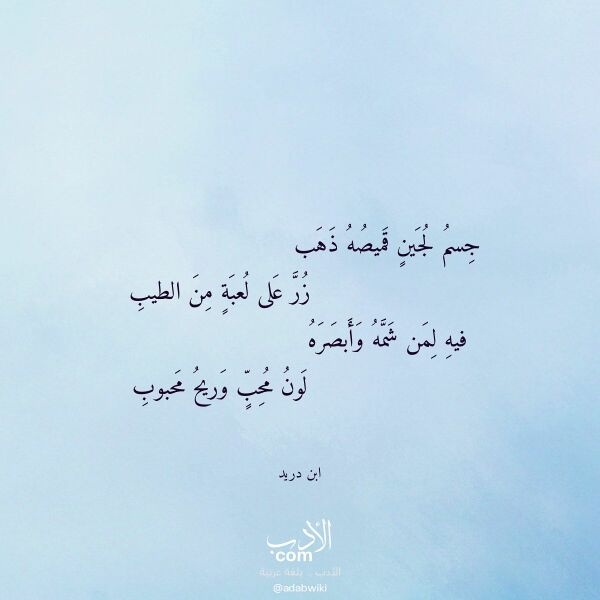 جِسمُ لُجَينٍ قَميصُهُ ذَهَب
زُرَّ عَلى لُعبَةٍ مِنَ الطيبِ
فيهِ لِمَن شَمَّهُ وَأَبصَرَهُ
لَونُ مُحِبٍّ وَريحُ مَحبوبِ
ابن دريد
الأدب
com
الأدب .. بلغة عربية
@adabwiki